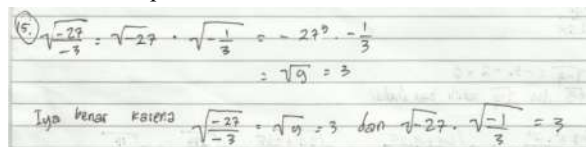 15. √(-27/-3) = √-27 · √-1/3 = - 27⁹ · - 1/3
= √9 = 3
Iya benar karena √(-27/-3) = √9 = 3 dan √-27 · √(-1/3) = 3